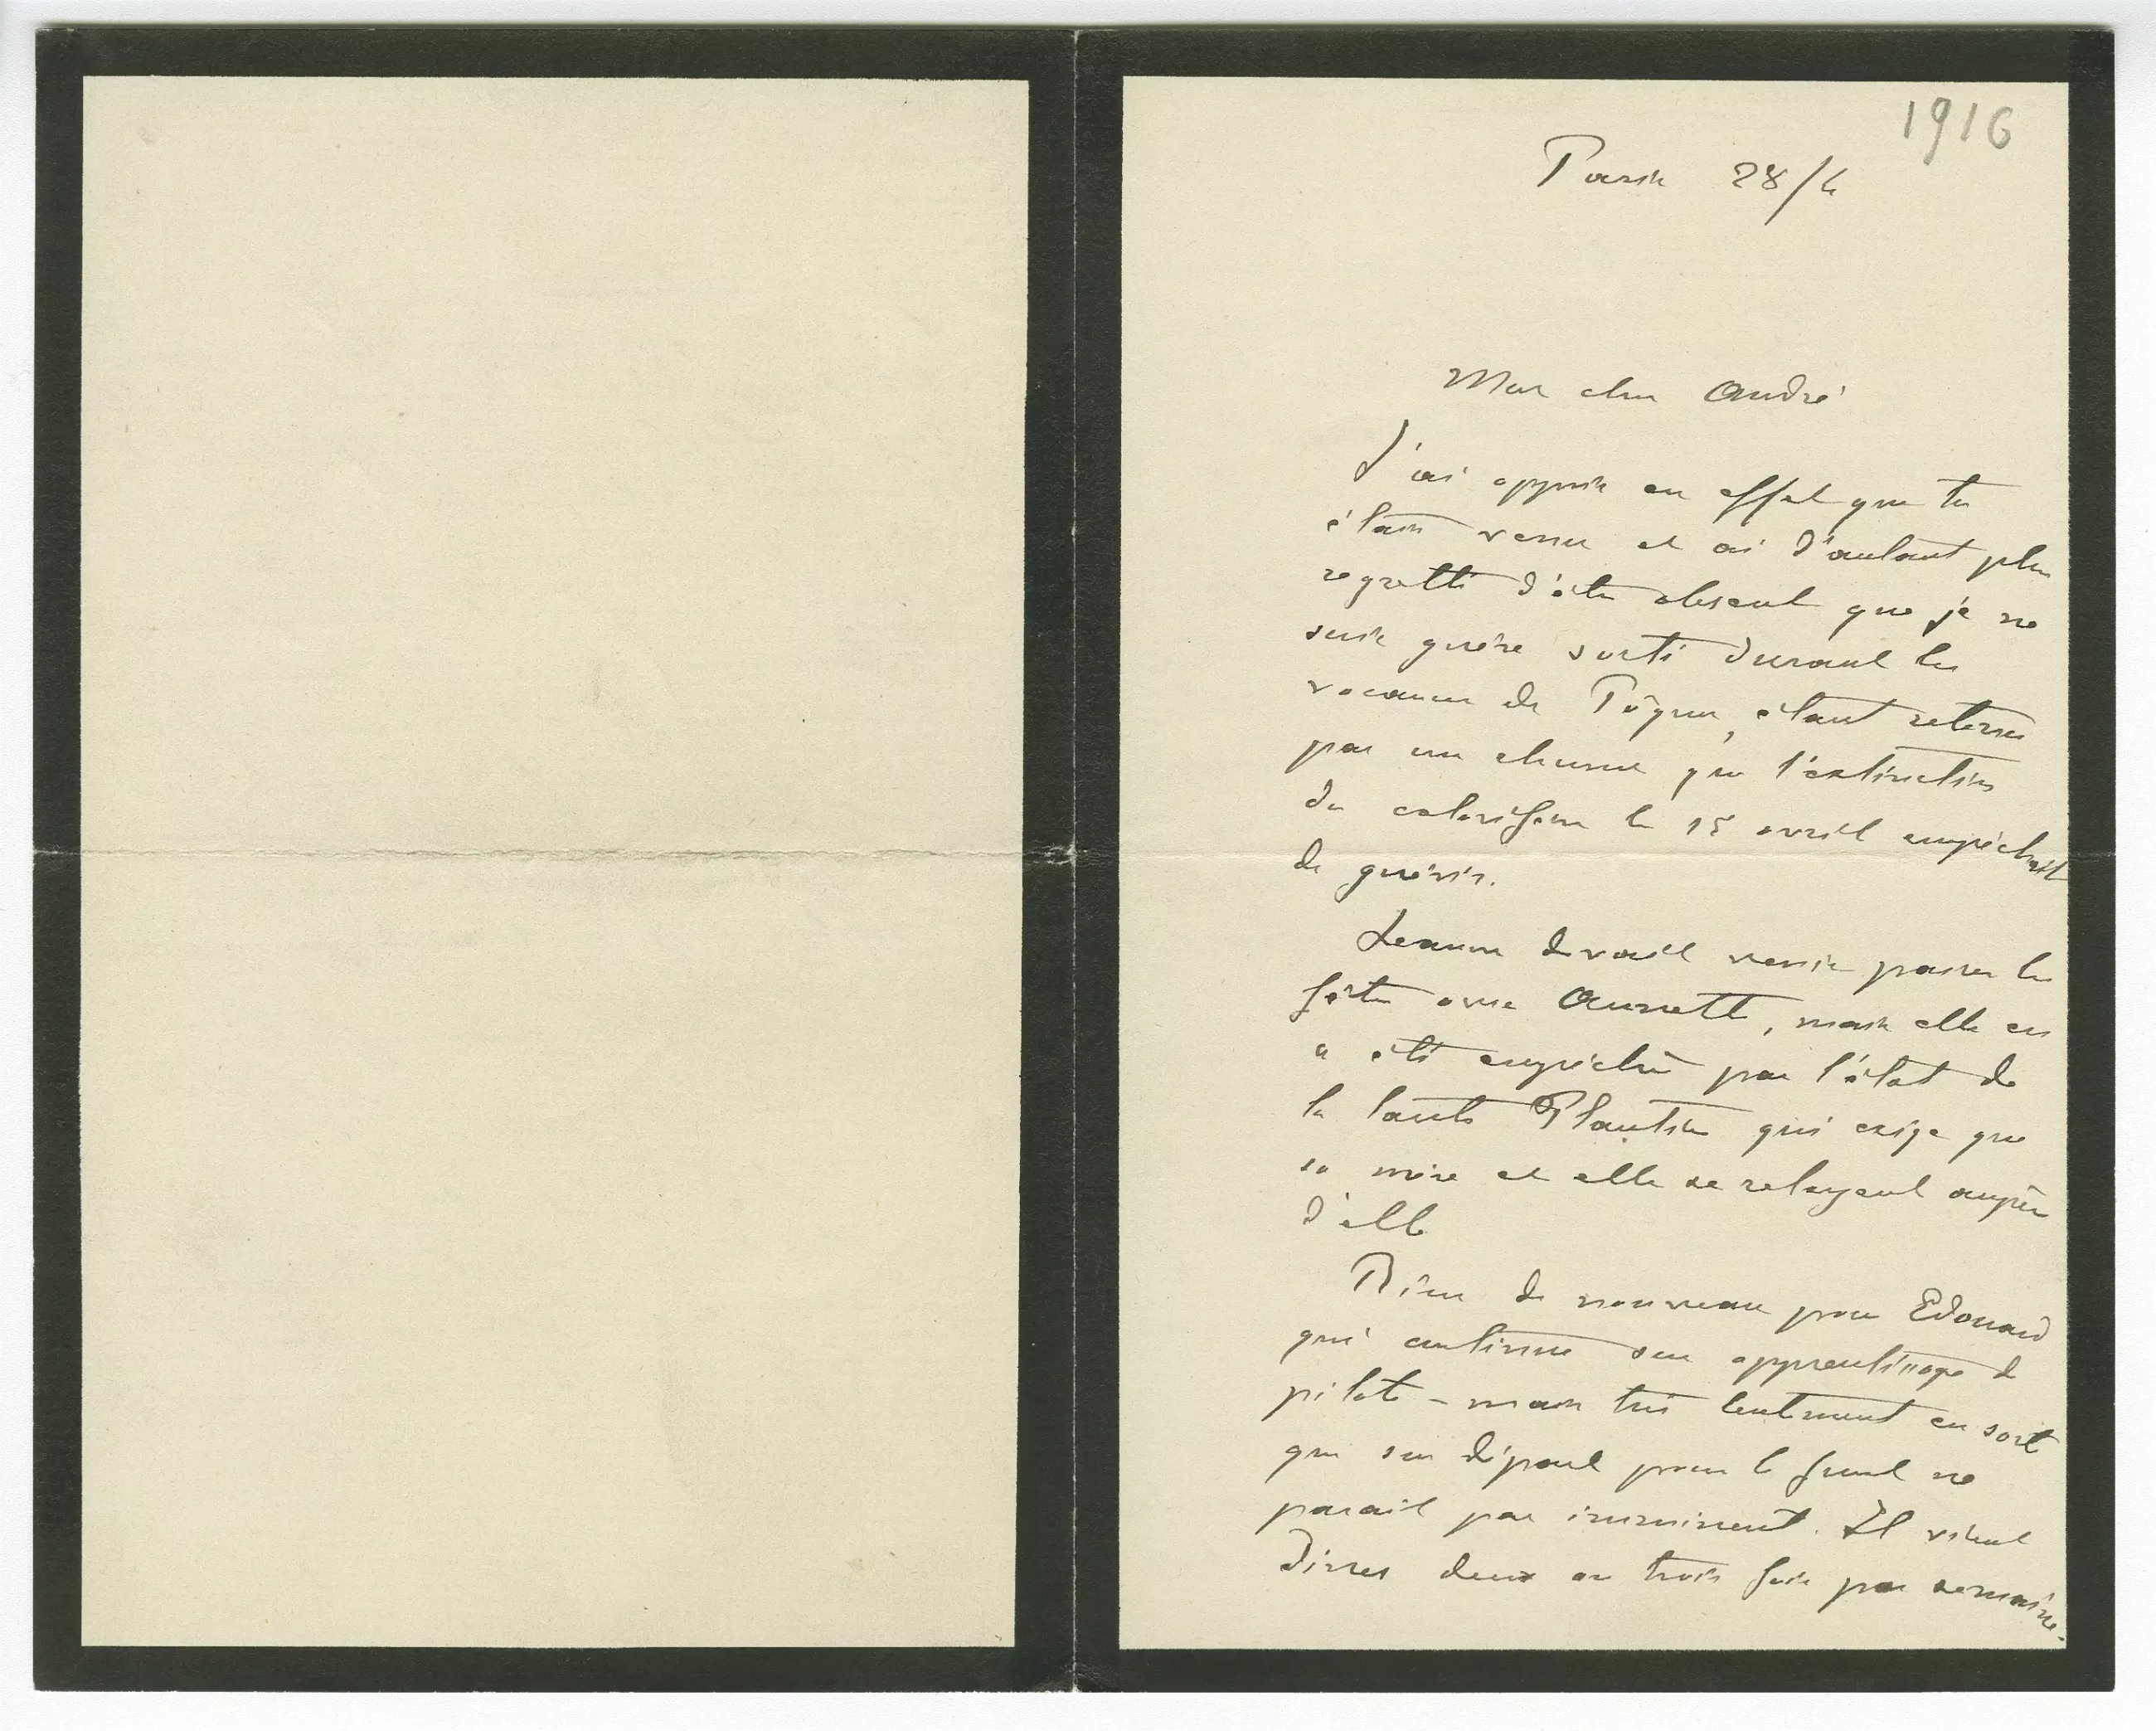 1916
Paris 28/4
Mon cher André
J'ai appris en effet que tu
étais venu et ai d'autant plus
regretté d'être absent que je ne
suis guère sorti durant les
vacances de Pâques, étant retenu
par un rhume que l'extinction
du calorifère le 15 avril empêchait
de guérir.
Jeanne devait venir passer les
fêtes avec Annette, mais elle en
a été empêchée par l'état de
la tante Plautine qui exige que
sa mère et elle se relayent auprès
d'elle
Rien de nouveau pour Edouard
qui continue son apprentissage de
pilote - mais très lentement en sorte
que son départ pour le front ne
parait pas imminent. Il vient
diner deux ou trois fois par semaine.